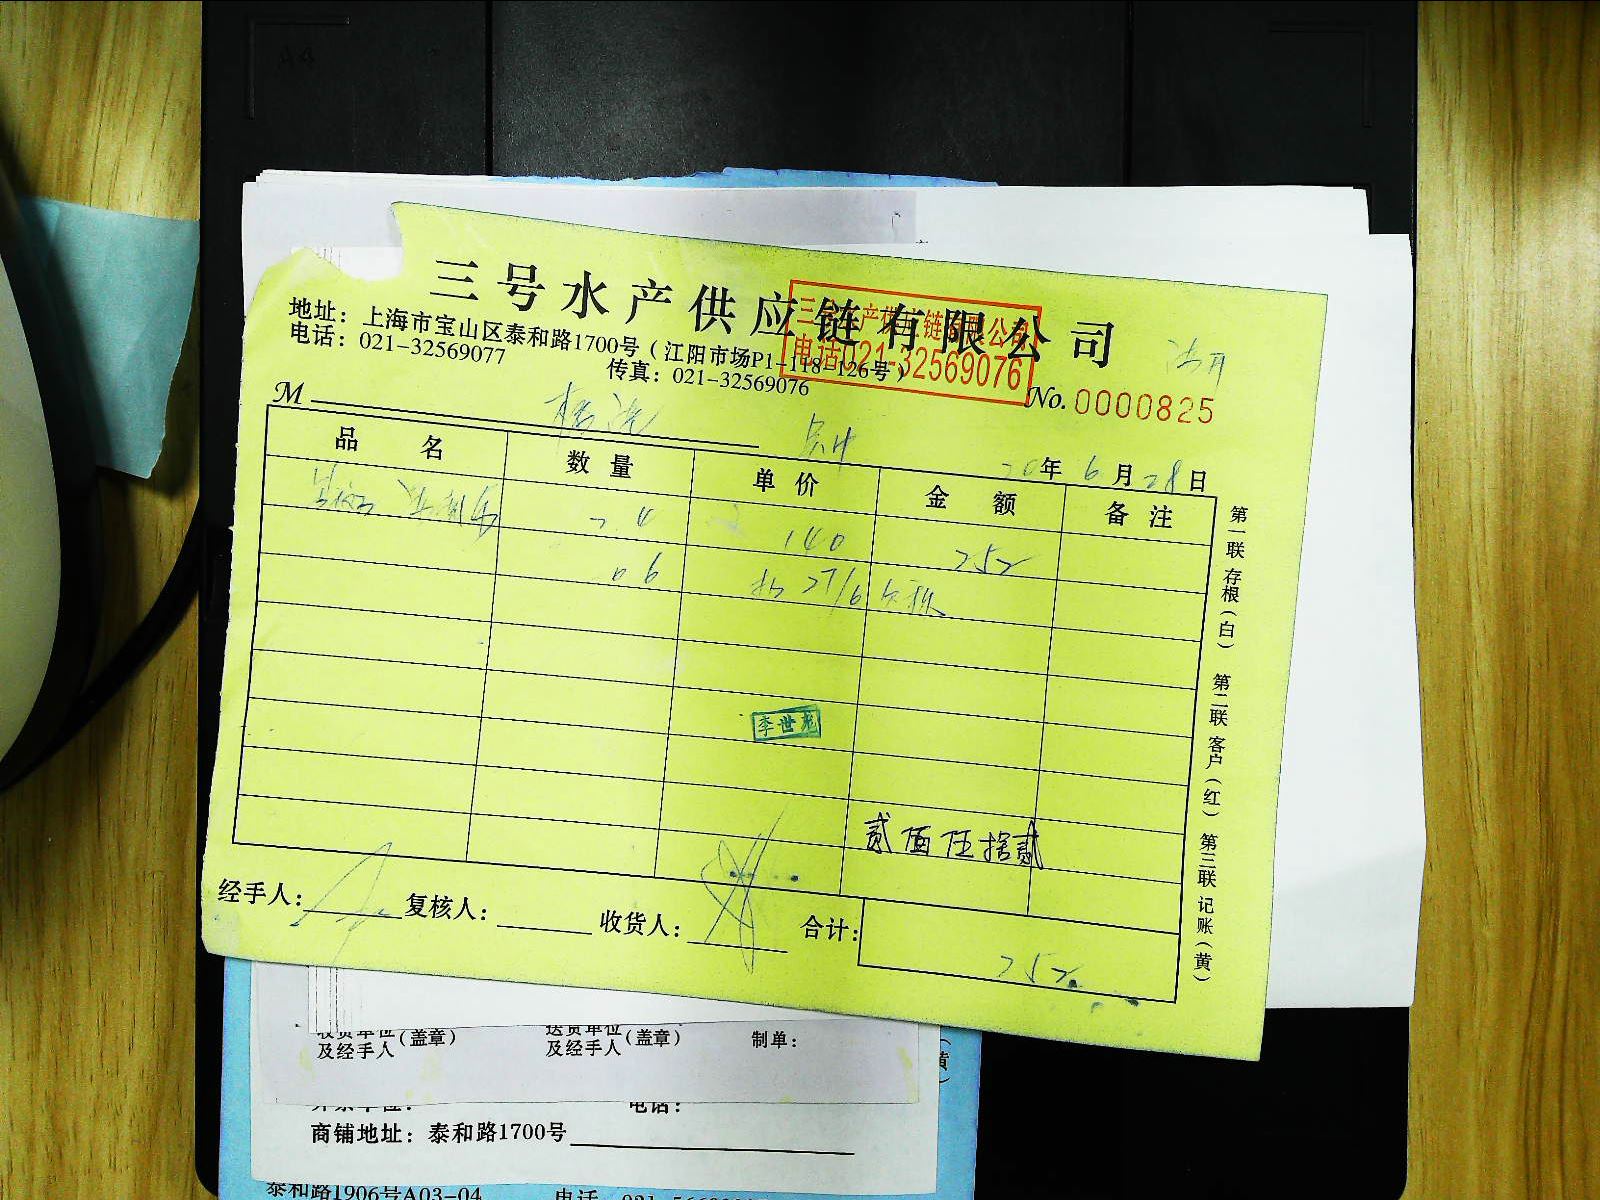 三号水产供应链有限公司
三号水产供应链有限公司
电话021-32569076
地址：上海市宝山区泰和路1700号（江阳市场P1-118-126号）
电话：021-32569077
传真：021-32569076
No. 0000825
M
20年6月28日
品名 数量 单价 金额 备注
140 252
06 27/6
李世龙
贰佰伍拾贰
经手人： 复核人： 收货人： 合计： 252
第一联 存根（白） 第二联 客户（红） 第三联 记账（黄）
收货单位（盖章） 送货单位（盖章） 制单：
及经手人 及经手人
电话：
商铺地址：泰和路1700号
泰和路1906号A03-04 电话